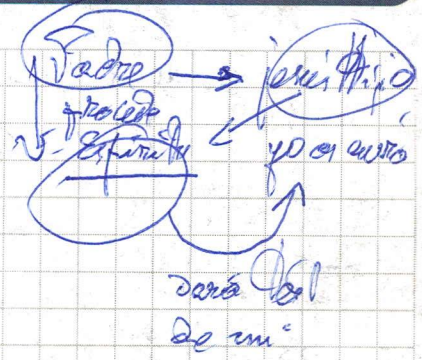 Padre → Jesús Hijo
procede
Espíritu yo os envío
Dará
de mí